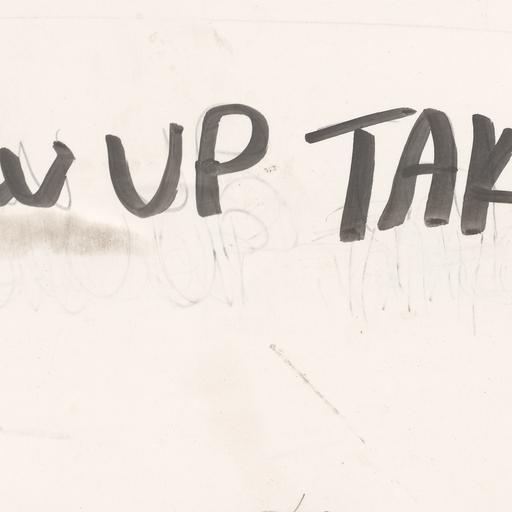 UP TAK